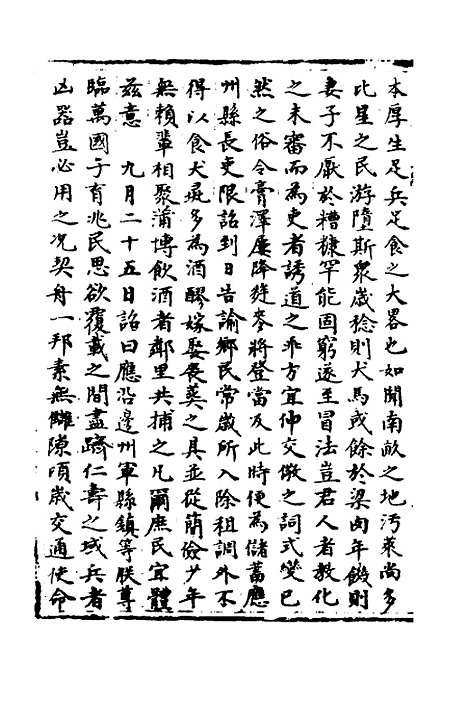 本厚生足兵足食之大畧也如聞南畝之地汚萊尚多
比屋之民游墮斯衆歲稔則犬馬或餘於梁肉年饑則
妻子不厭於糟糠罕能固窮遂至冒法豈君人者教化
之未審而為吏者誘道之乖方宜伸交儆之詞式變已
然之俗令膏澤屢降麰麥將登當及此時便為儲蓄應
州縣長吏限詔到日告諭鄉民常歲所入除租調外不
得以食犬彘多為酒醪嫁娶喪葬之具並從簡儉少年
無賴輩相聚蒲博飲酒者鄰里共捕之凡爾庶民宜體
兹意 九月二十五日詔曰應沿邊州軍縣鎮等朕尊
臨萬國子育兆民思欲覆載之間盡躋仁壽之域兵者
凶器豈必用之况契丹一邦素無讎隙頃歲交通使命